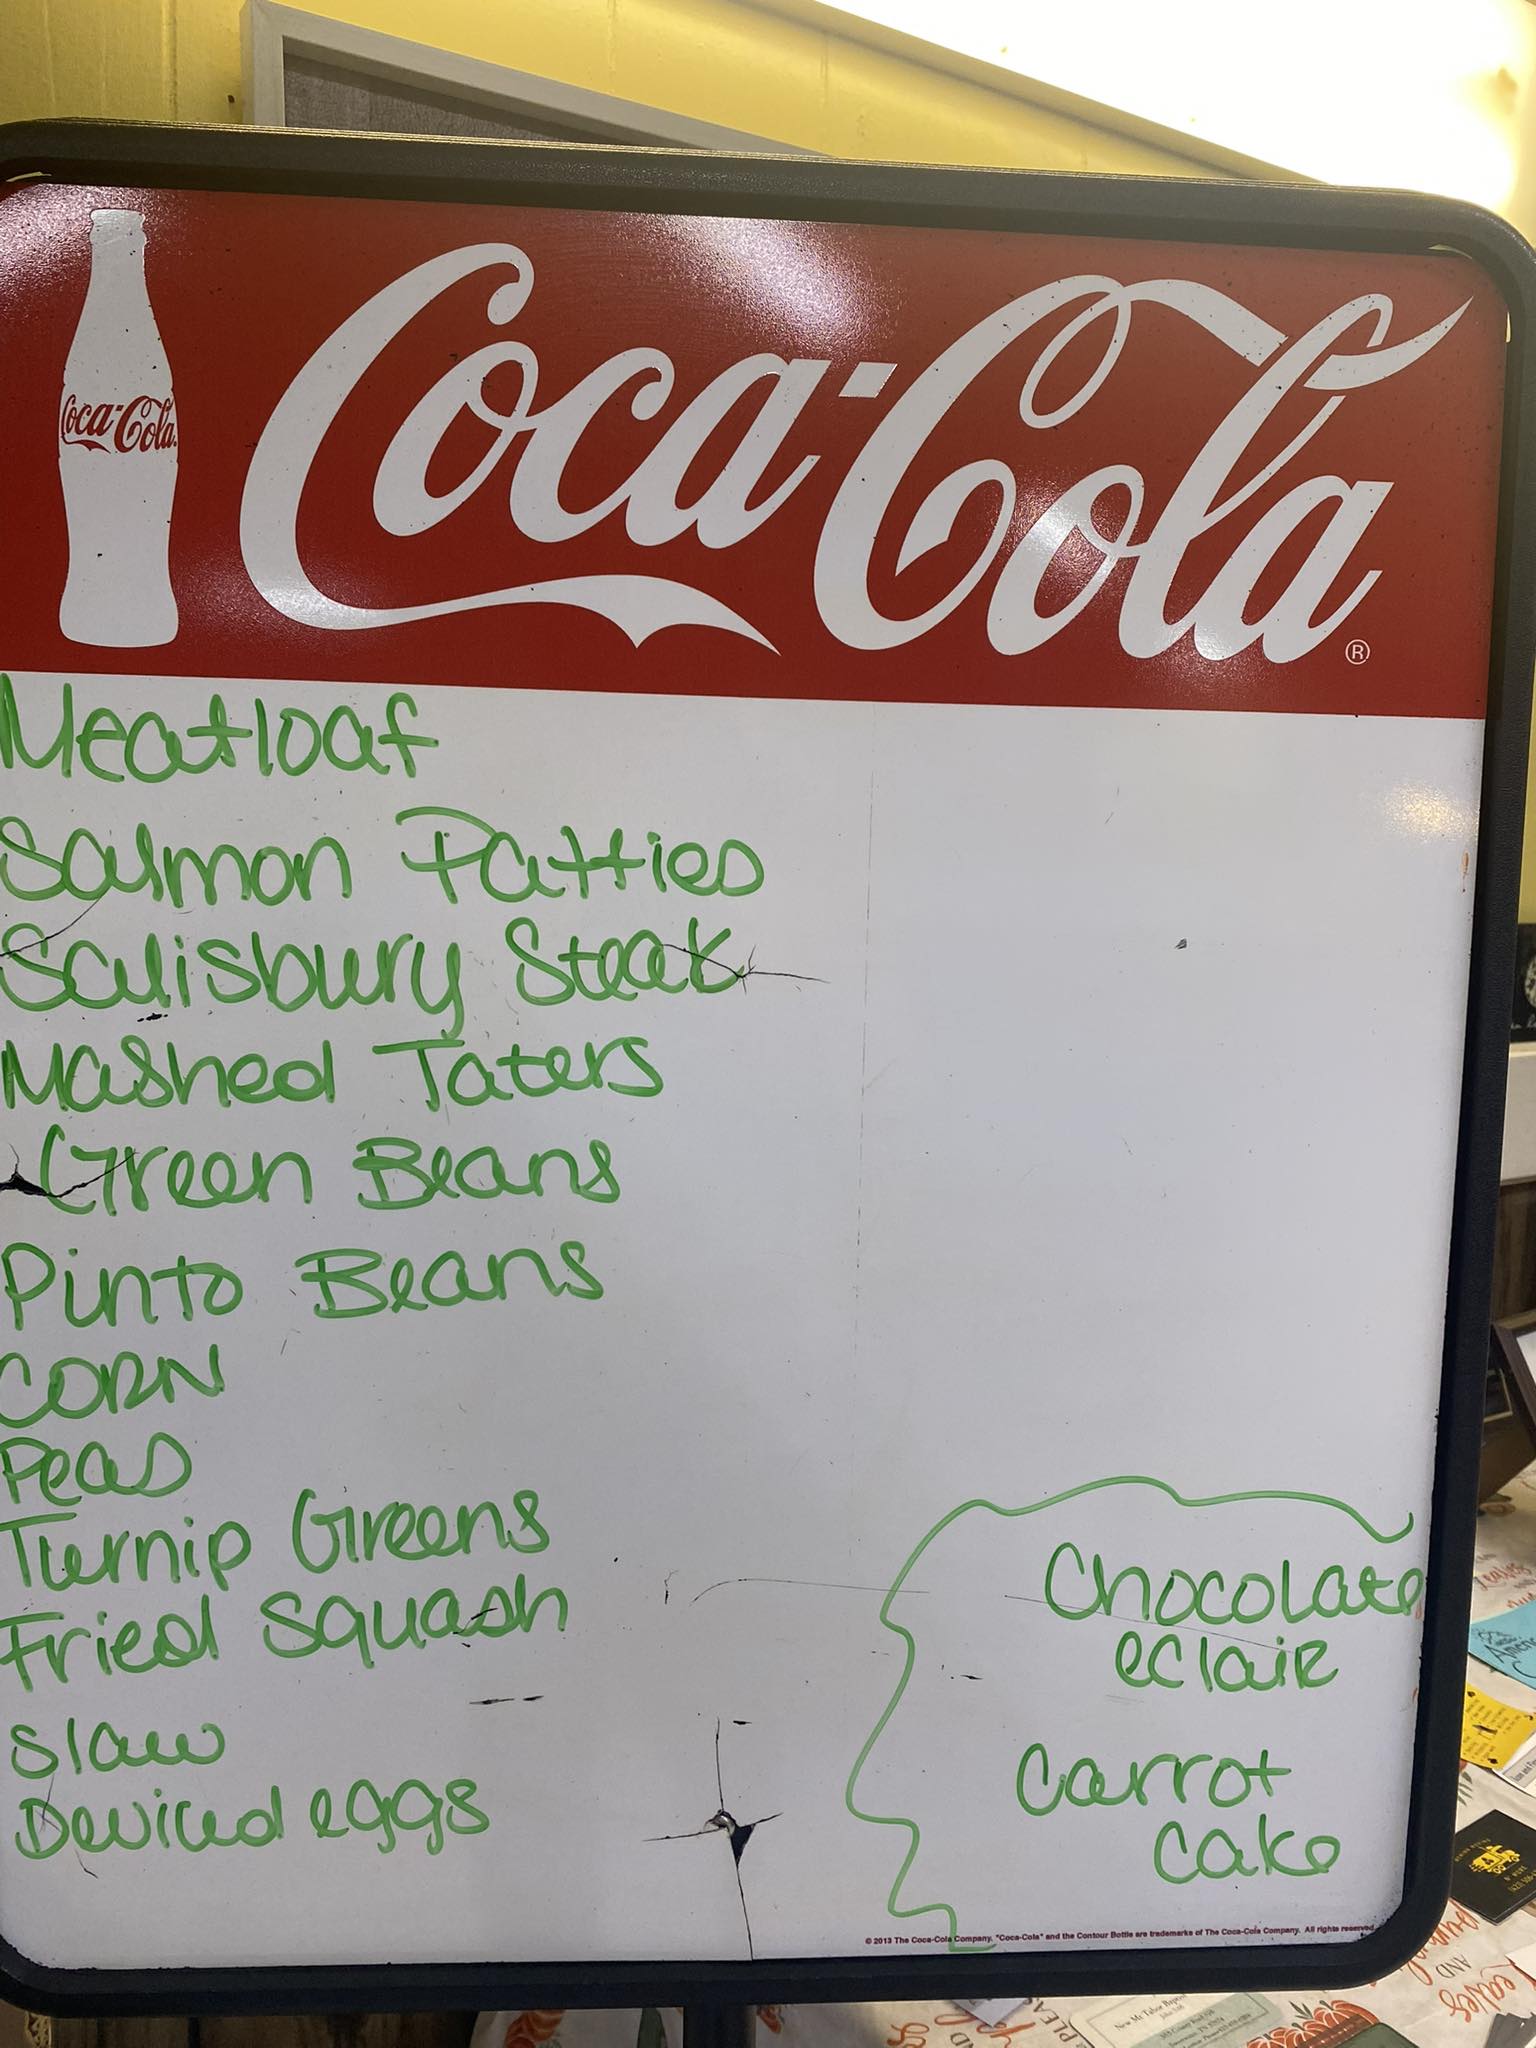 Coca-Cola
Coca-Cola®
Meatloaf
Salmon Patties
Salisbury Steak
Mashed Taters
Green Beans
Pinto Beans
CORN
Peas
Turnip Greens
Fried Squash
Slaw
Deviled eggs
Chocolate
eclair
Carrot
cake
© 2013 The Coca-Cola Company. "Coca-Cola" and the Contour Bottle are trademarks of The Coca-Cola Company. All rights reserved.
New Mt Tabor Baptist
AND